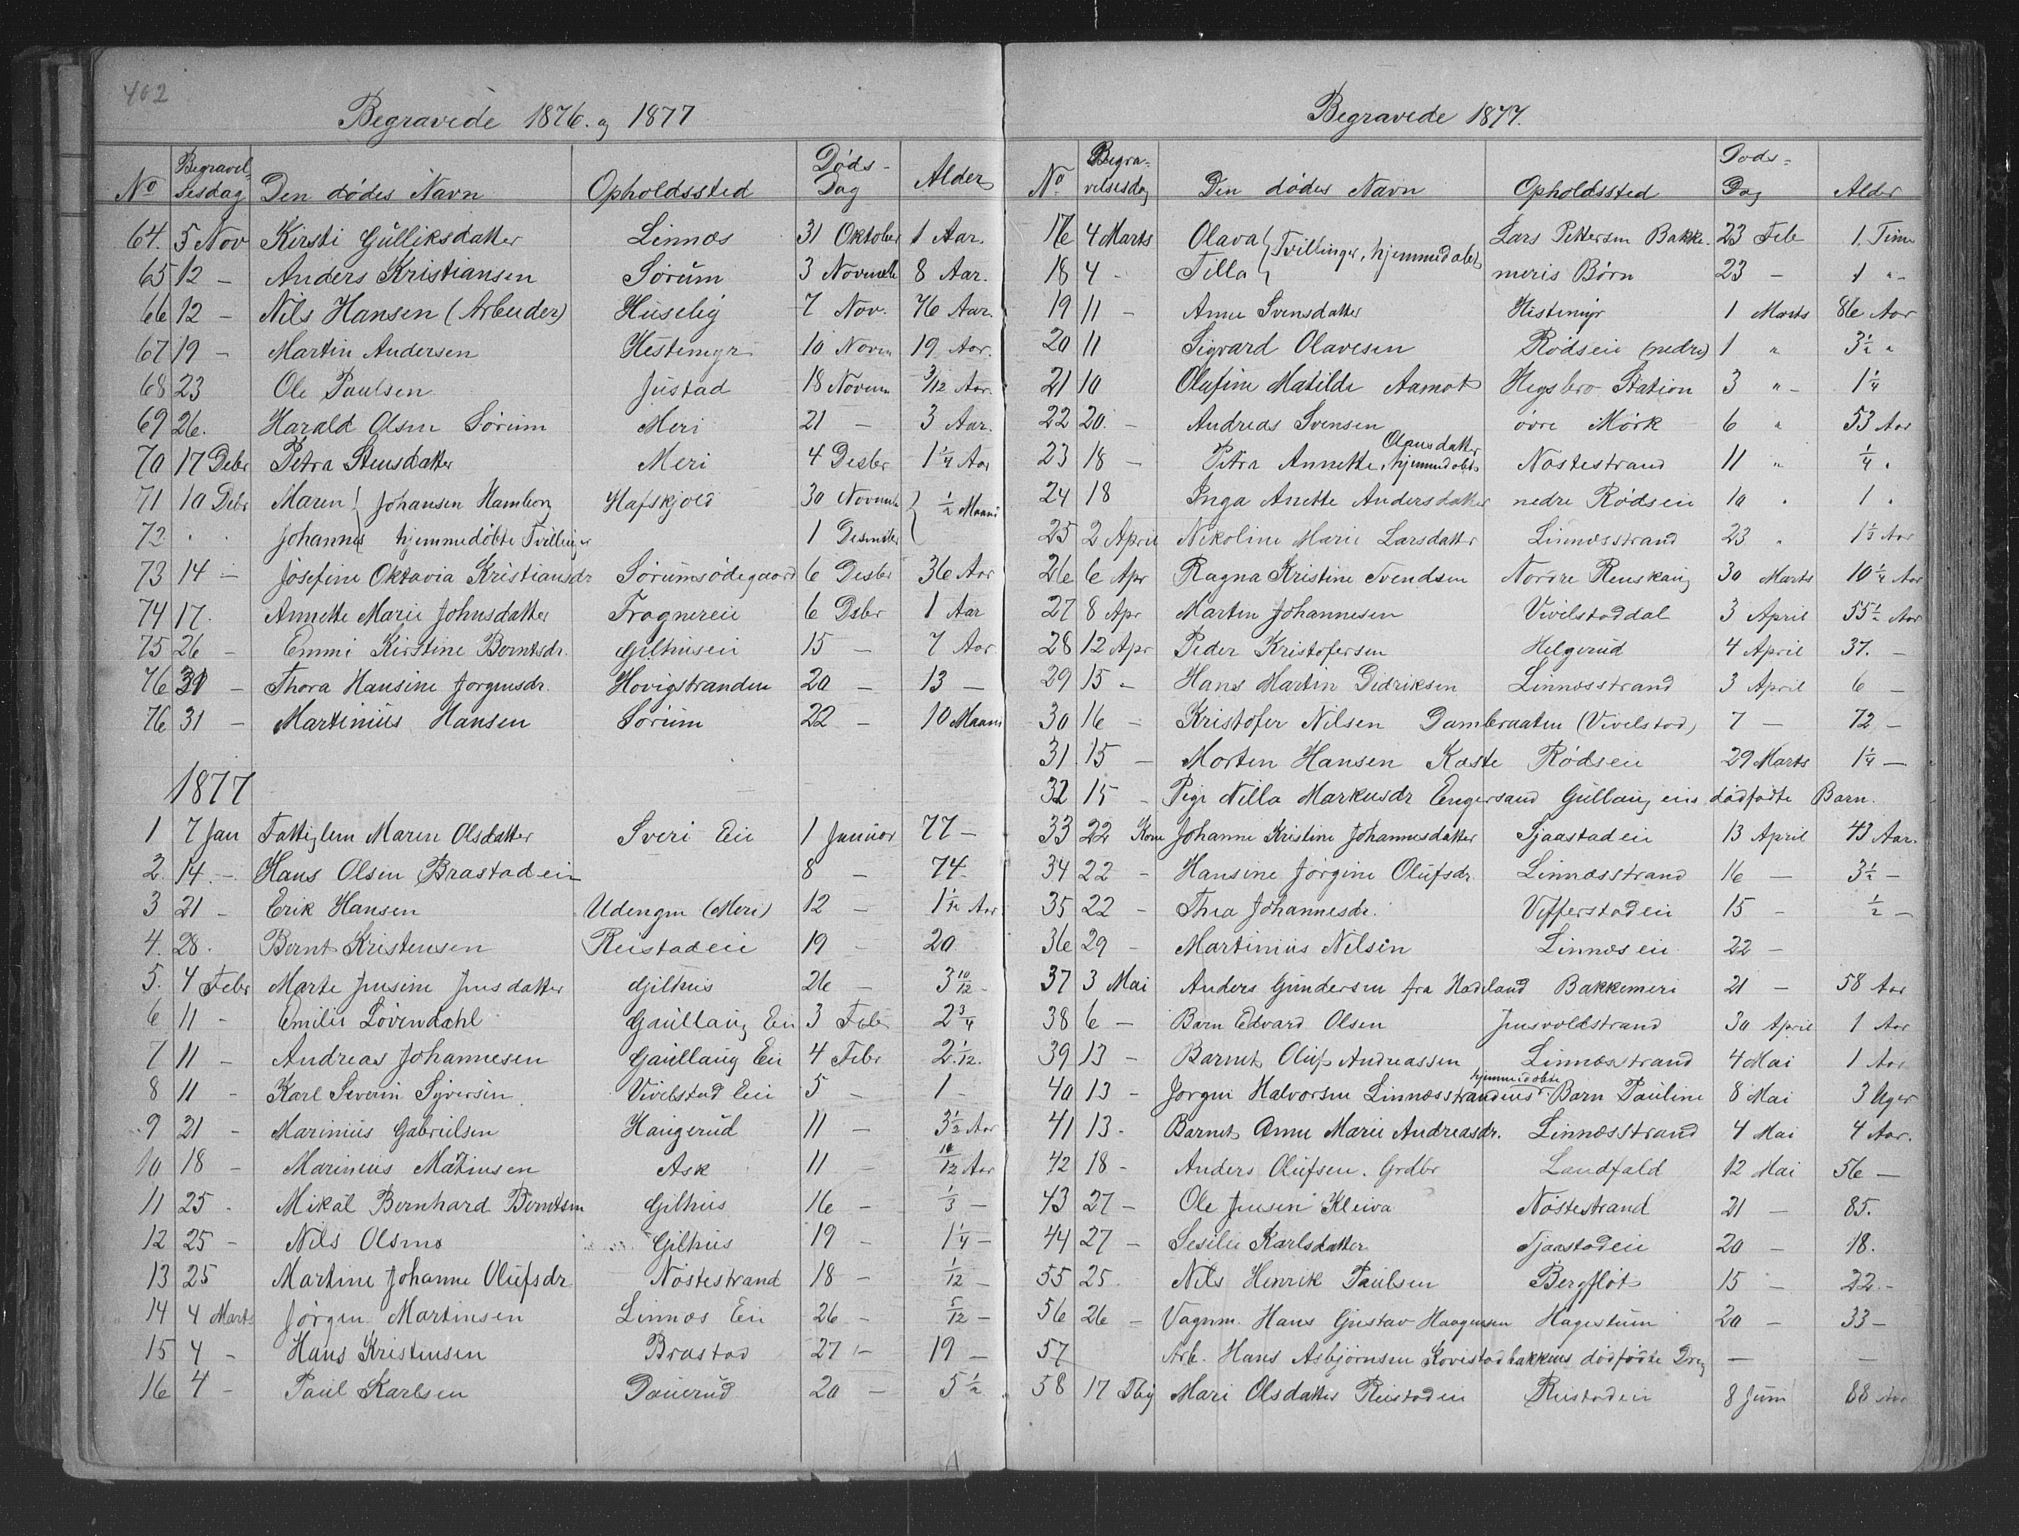 402
Begravede 1876 og 1877
No Begravelsesdag Den dødes Navn Opholdssted Døds-Dag Alder
64. 5 Nov Kirsti Gulliksdatter Linnæs 31 Oktober 1 Aar.
65 12 – Anders Kristiansen Sørum 3 Novemb 8 Aar.
66 12 – Nils Hansen (Arbeider) Huseby 7 Nov. 76 Aar.
67 19 – Martin Andersen Hestemyr 10 Novm 19 Aar.
68 23 Ole Paulsen Justad 18 Novem 3/12 Aar.
69 26. Harald Olsen Sørum Meri 21 – 3 Aar.
70 17 Debr Petra Stensdatter Meri 4 Desbr 1 1/4 Aar
71 10 Debr Maren } Johansen Hamborg Hafskjold 30 Novemb } 1/2 Maane
72 " " Johannes } hjemmedøbte Tvillinger 1 Desember
73 14 – Josefine Oktavia Kristiansdr Sørumsødegaard 6 Desbr 36 Aar
74 17. Annette Marie Johnsdatter Frognereie 6 Dsbr 1 Aar
75 26 – Emmi Kirstine Berntsdr. Gilhuseie 15 – 7 Aar
76 31 – Thora Hansine Jørgensdr. Hovigstranden 20 – 13 –
76 31 – Martinius Hansen Sørum 22 – 10 Maan
1877
1 7 Jan Fattiglem Maren Olsdatter Sveri Eie 1 Januar 77 –
2. 14. – Hans Olsen Brastadeie 8 – 74 –
3 21 – Erik Hansen Udengen (Meri) 12 – 1 1/12 Aar
4. 28. Bernt Kristensen Reistadeie 19 – 20
5. 4 Febr Marte Jensine Jensdatter Gilhus 26 – 3 10/12 –
6 11 – Emilie Løvendahl Gullaug Eie 3 Feb 2 3/4
7 11 – Andreas Johannesen Gullaug Eie 4 Febr 2 1/12.
8 11 – Karl Severin Syversen Vivelstad Eie 5 – 1 –
9 21 – Marinius Gabrielsen Haugerud 11 – 3 1/2 Aar
10 18 – Marinius Matiusen Ask 11 – 10/12 Aar
11 25 – Mikal Bernhard Berntsen Gilhus 16 – 1/3 –
12 25 – Nils Olsen Gilhus 19 – 1 1/4 –
13 25 Martine Johanne Olufsdr Nøstestrand 18 – 1/12 –
14 4 Marts Jørgen Martinsen Linnæs Eie 26 – 5/12 –
15 4 – Hans Kristensen Brastad 27 – 19 –
16 4 – Paul Karlsen Dauerud 20 – 5 1/2
Begravede 1877.
No Begravelsesdag Den dødes Navn Opholdssted Døds-Dag Alder
17 4 Marts Olava } Tvillinger, hjemmedøbt Lars Pettersen Bakke- 23 Feb 1 Time
18 4 – Tilla } meris Børn 23 – 1 " –
19 11 – Anne Svensdatter Hestemyr 1 Marts 86 Aar
20 11 Sigvard Olavesen Rødseie (nedre) 1 " 3 1/2 "
21 10 Olufine Matilde Aamot Hegsbro Station 3 " – 1 1/4
22 20. – Andreas Svensen øvre Mørk 6 " 53 Aar
23 18 – Petra Annette Olausdatter, hjemmedøbt Nøstestrand 11 " 1/4 "
24 18 Inga Anette Andersdatter nedre Rødseie 10 " 1 "
25 2 April Nikoline Marie Larsdatter Linnæsstrand 23 " 1 1/2 Aar
26 6 Apr Ragna Kristine Svendsen Nordre Renskaug 30 Marts 10 1/4 Aar
27 8 Apr Martin Johannesen Vivelstaddal 3 April 55 1/2 Aar
28 12 Apr Peder Kristofersen Helgerud 4 April 37. –
29 15 – Hans Martin Didriksen Linnæsstrand 3 April 6 –
30 16 – Kristofer Nilsen Dambraaten (Vivelstad) 7 – 72 –
31 15 – Morten Hansen Kaste Rødseie 29 Marts 1 1/4 –
32 15 – Pige Nilla Markusdr Engersand Gullaug eies dødfødte Barn.
33 22 Kone Johanne Kristine Johannesdatter Sjaastadeie 13 April 43 Aar.
34 22 – Hansine Jørgine Olufsdr. Linnæsstrand 16 – 3 1/2 –
35 22 – Thea Johannesdr. Vefferstadeie 15 – 1/2 –
36 29 – Martinius Nilsen Linnæseie 22 –
37 3 Mai Anders Gundersen fra Hadeland Bakkemeri 21 – 58 Aar
38 6 – Barn Edvard Olsen Jensvoldstrand 30 April 1 Aar
39 13 – Barnet Oluf Andreassen Linnæsstrand 4 Mai 1 Aar
40 13 – Jørgen Halvorsen Linnæsstrandens hjemmedøbte Barn Pauline 8 Mai 3 Uger
41 13 – Barnet Anne Marie Andreasdr. Linnæsstrand 4 Mai 4 Aar.
42 18 – Anders Olufsen. Grdbr Landfald 12 Mai 56 –
43 27 – Ole Jensen Kleiva Nøstestrand 21 – 85.
44 27 – Sesilie Karlsdatter Sjaastadeie 20 – 18.
55 25 Nils Henrik Paulsen Bergfløt 15 – 22. –
56 26 – Vognm. Hans Gustav Haagensen Hagestuen 20 – 33 –
57 Arb. Hans Asbjørnsen Kovestadbakkens dødfødte Dreng – –
58 17 Mari Olsdatter Reistadeie Reistadeie 8 Juni 88 Aar